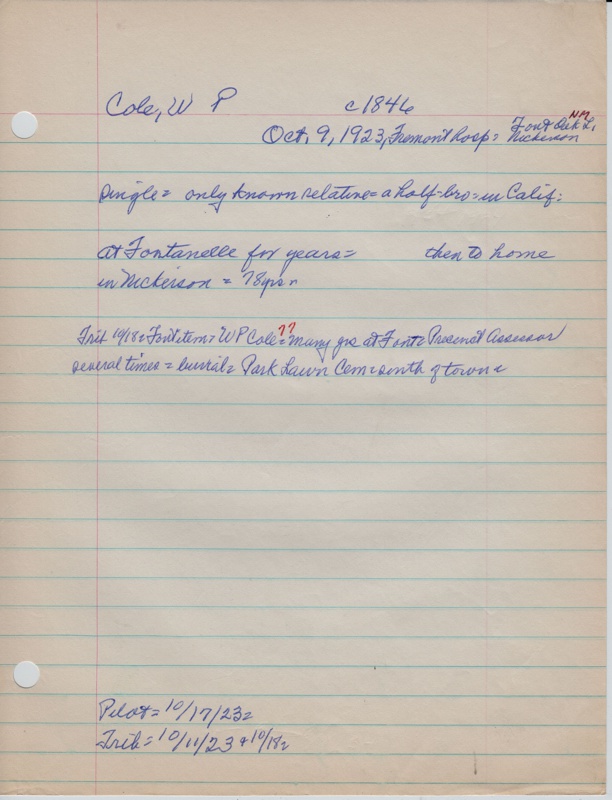 Cole, W P c1846
NM
Oct. 9, 1923, Fremont hosp= Font Oak L,
Nickerson
single= only known relative= a half-bro= in Calif=
at Fontanelle for years= then to home
in Nickerson = 78yrs=
??
Trib 10/18= Font item= W P Cole= many yrs at Font= Precinct Assessor
several times= burial= Park Lawn Cem= south of town=
Pilot= 10/17/23=
Trib= 10/11/23 & 10/18=